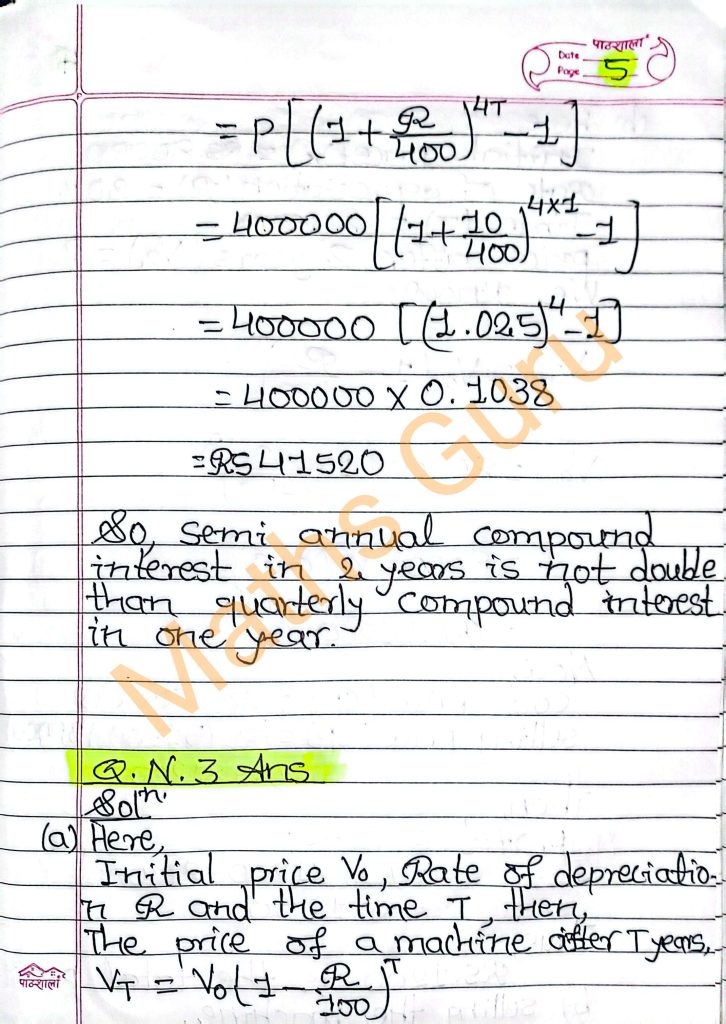 पाठशाला
Date
Page 5
= P[(1 + R/400)^4T - 1]
= 400000[(1 + 10/400)^4×1 - 1]
= 400000 [(1.025)^4 - 1]
= 400000 × 0.1038
= RS 41520
So, semi annual compound
interest in 2 years is not double
than quarterly compound interest
in one year.
Maths Guru
Q.N.3 Ans
Solⁿ.
(a) Here,
Initial price V₀, Rate of depreciatio-
n R and the time T, then,
The price of a machine after T years,
V_T = V₀(1 - R/100)^T
पाठशाला